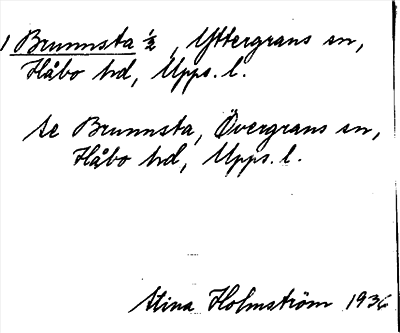 1 Brunnsta ½, Yttergrans sn,
Håbo hd, Upps. l.
se Brunnsta, Övergrans sn,
Håbo hd, Upps. l.
Stina Holmström 1936